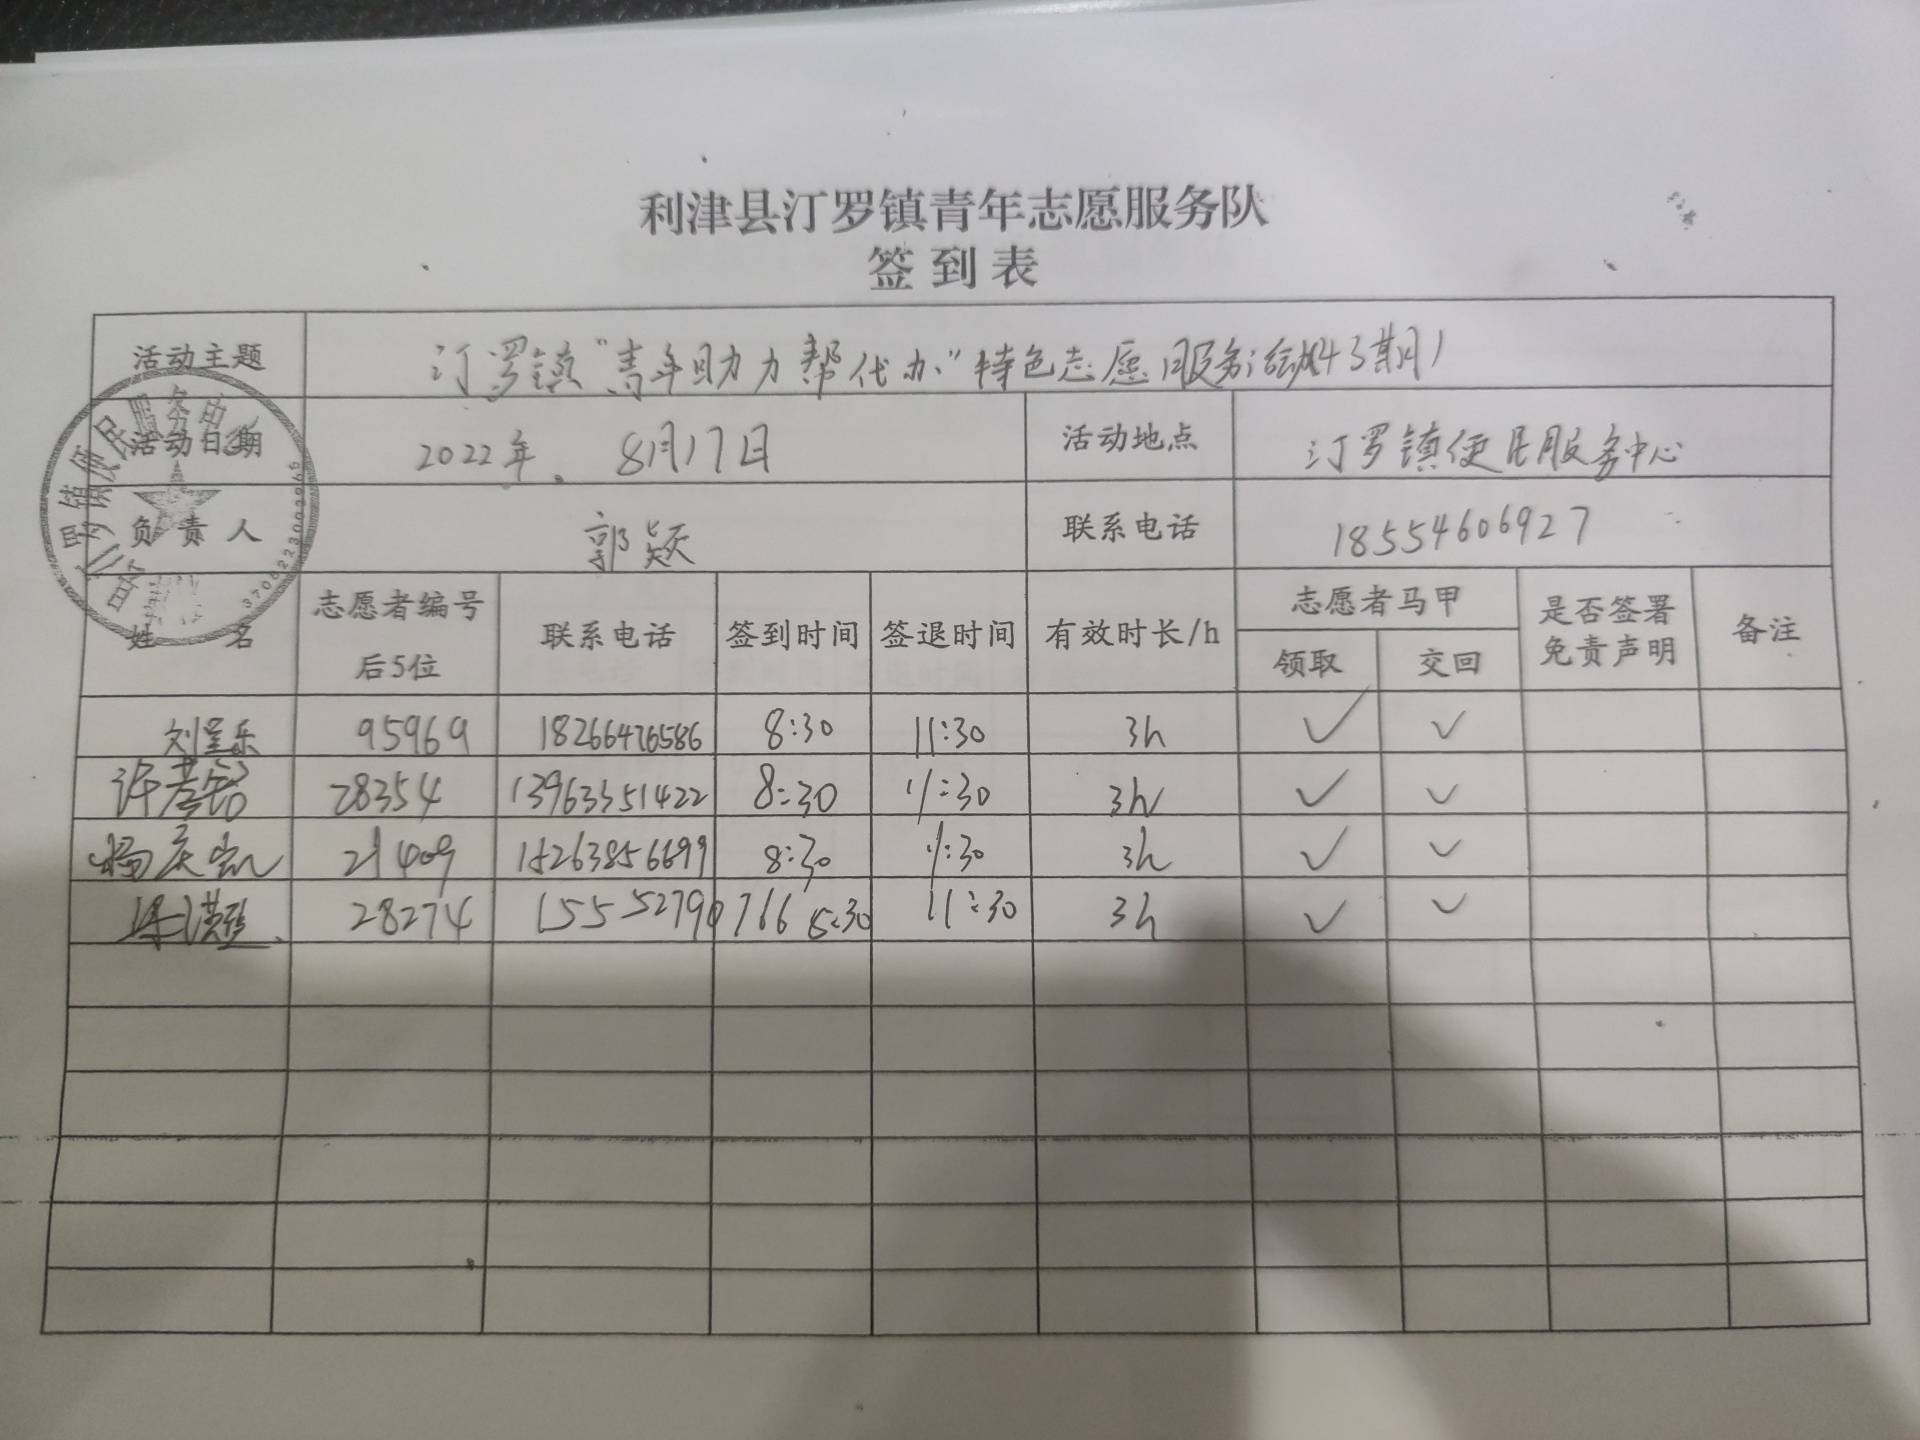 利津县汀罗镇青年志愿服务队
签到表
活动主题 汀罗镇“青年助力帮代办”特色志愿服务活动43期1
活动日期 2022年. 8月17日 活动地点 汀罗镇便民服务中心
负责人 郭颖 联系电话 18554606927
姓名 志愿者编号后5位 联系电话 签到时间 签退时间 有效时长/h 志愿者马甲 领取 交回 是否签署免责声明 备注
95969 18266476586 8:30 11:30 3h ✓ ✓
28354 13963351422 8:30 11:30 3h ✓ ✓
杨庆凯 21409 15263856699 8:30 11:30 3h ✓ ✓
28274 15552790766 8:30 11:30 3h ✓ ✓
3706223003965